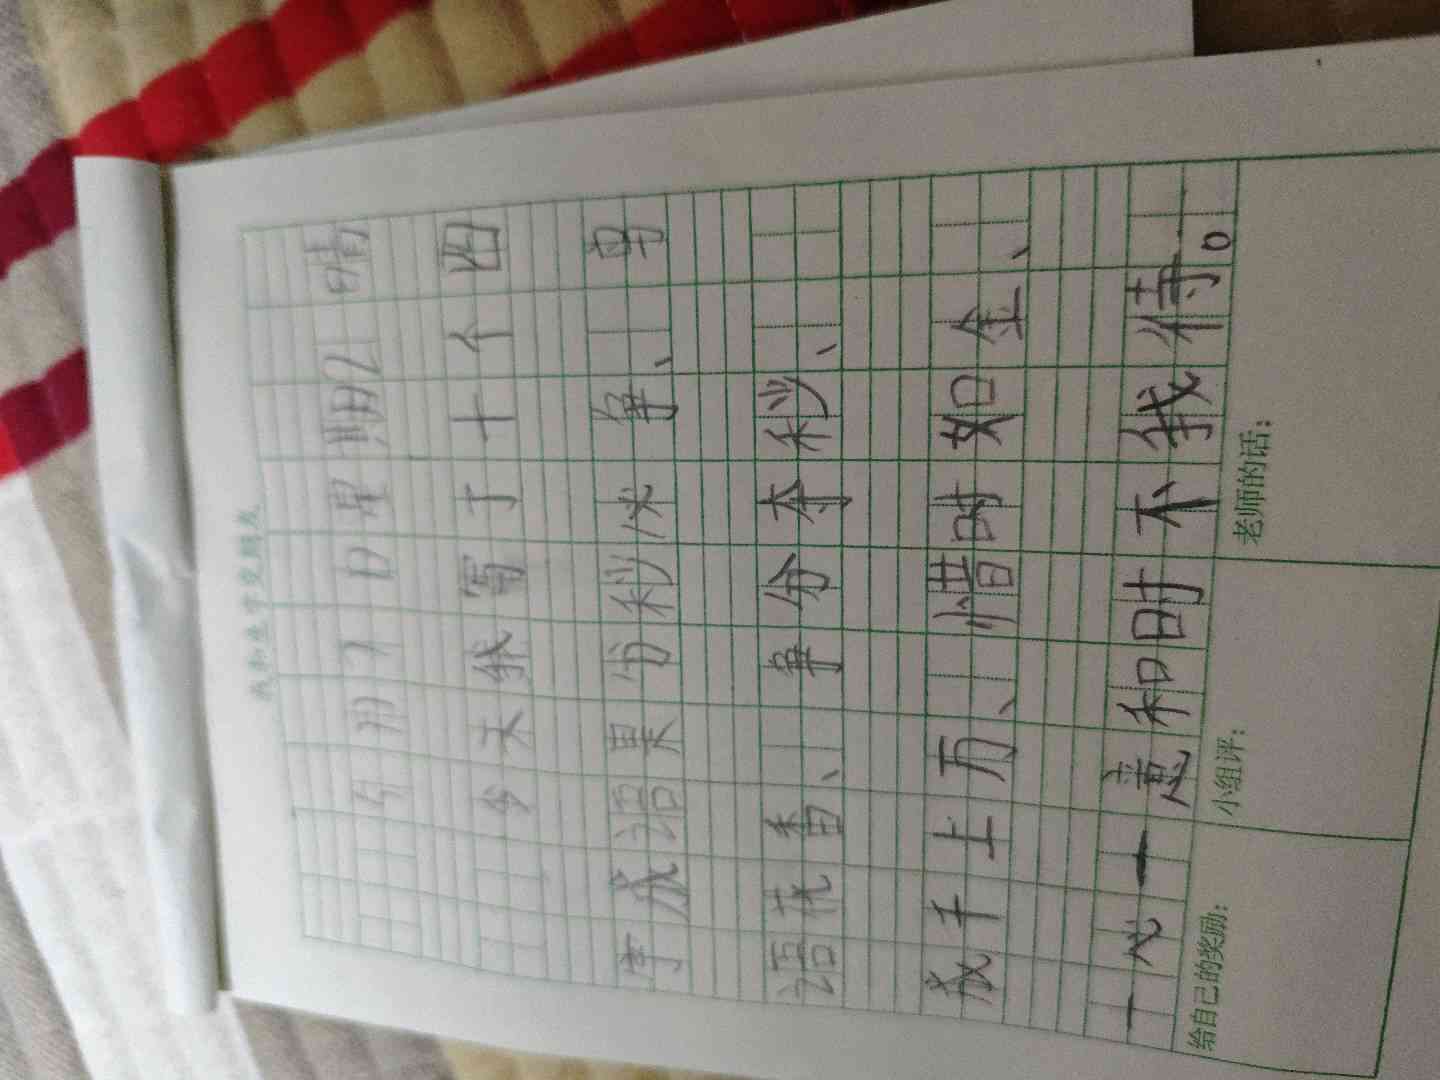 我和生字交朋友
今明 7 日星期2 晴
今天我写了十个四
字成语果分秒必争、寻
语花香、争分夺秒、
成千上万、惜时如金、
一心一意和时不我待。
老师的话：
小组评：
给自己的奖励：